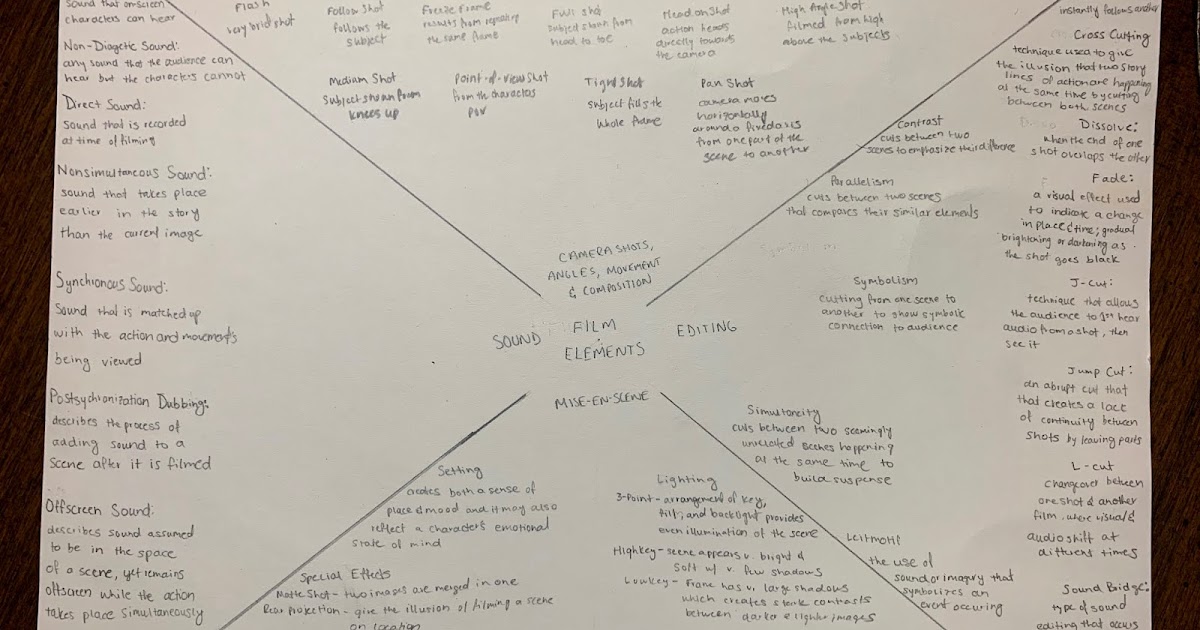 Sound that on-screen
characters can hear
Non-Diagetic Sound:
any sound that the audience can
hear but the characters cannot
Direct Sound:
Sound that is recorded
at time of filming
Nonsimultaneous Sound:
sound that takes place
earlier in the story
than the current image
Synchronous Sound:
Sound that is matched up
with the action and movements
being viewed
Postsychronization Dubbing:
describes the process of
adding sound to a
scene after it is filmed
Offscreen Sound:
describes sound assumed
to be in the space
of a scene, yet remains
offscreen while the action
takes place simultaneously
Flash
very brief shot
Follow Shot
follows the
subject
Freeze Frame
results from repeating
the same frame
Full shot
subject shown from
head to toe
Head on Shot
action heads
directly towards
the camera
High Angle Shot
filmed from high
above the subjects
Medium Shot
Subject shown from
knees up
Point-of-view Shot
from the characters
POV
Tight Shot
subject fills the
whole frame
Pan Shot
camera moves
horizontally
around a fixed axis
from one part of the
scene to another
CAMERA SHOTS,
ANGLES, MOVEMENT
& COMPOSITION
SOUND
FILM
ELEMENTS
EDITING
MISE-EN-SCENE
instantly follows another
Cross Cutting
technique used to give
the illusion that two story
lines of action are happening
at the same time by cutting
between both scenes
Contrast
cuts between two
scenes to emphasize their difference
Dissolve:
when the end of one
shot overlaps the other
Parallelism
cuts between two scenes
that compares their similar elements
Fade:
a visual effect used
to indicate a change
in place & time; gradual
brightening or darkening as
the shot goes black
Symbolism
cutting from one scene to
another to show symbolic
connection to audience
J-cut:
technique that allows
the audience to 1st hear
audio from a shot, then
see it
Jump Cut:
an abrupt cut that
that creates a lack
of continuity between
shots by leaving parts
Simultaneity
cuts between two seemingly
unrelated scenes happening
at the same time to
build suspense
L-cut
changeover between
one shot & another
film, where visual &
audio shift at
different times
Leitmotif
the use of
sound or imagery that
symbolizes an
event occuring
Sound Bridge:
type of sound
editing that occurs
Setting
creates both a sense of
place & mood and it may also
reflect a characters emotional
state of mind
Special Effects
Matte Shot - two images are merged in one
Rear projection - give the illusion of filming a scene
on location
Lighting
3-Point - arrangement of key,
fill, and backlight provides
even illumination of the scene
High key - scene appears v. bright &
soft w/ v. few shadows
Low key - Frame has v. large shadows
which creates stark contrasts
between darker & lighter images